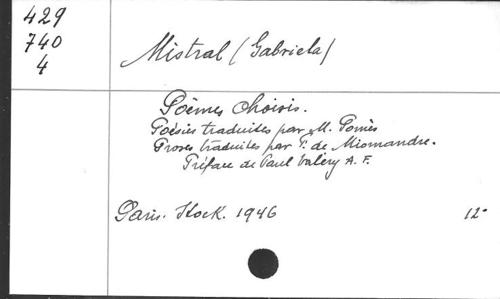 429
740
4
Mistral (Gabriela)
Poèmes choisis.
Poésies traduites par M. Pomès
Proses traduites par F. de Miomandre.
Préface de Paul Valéry A. F.
Paris. Stock. 1946 12°